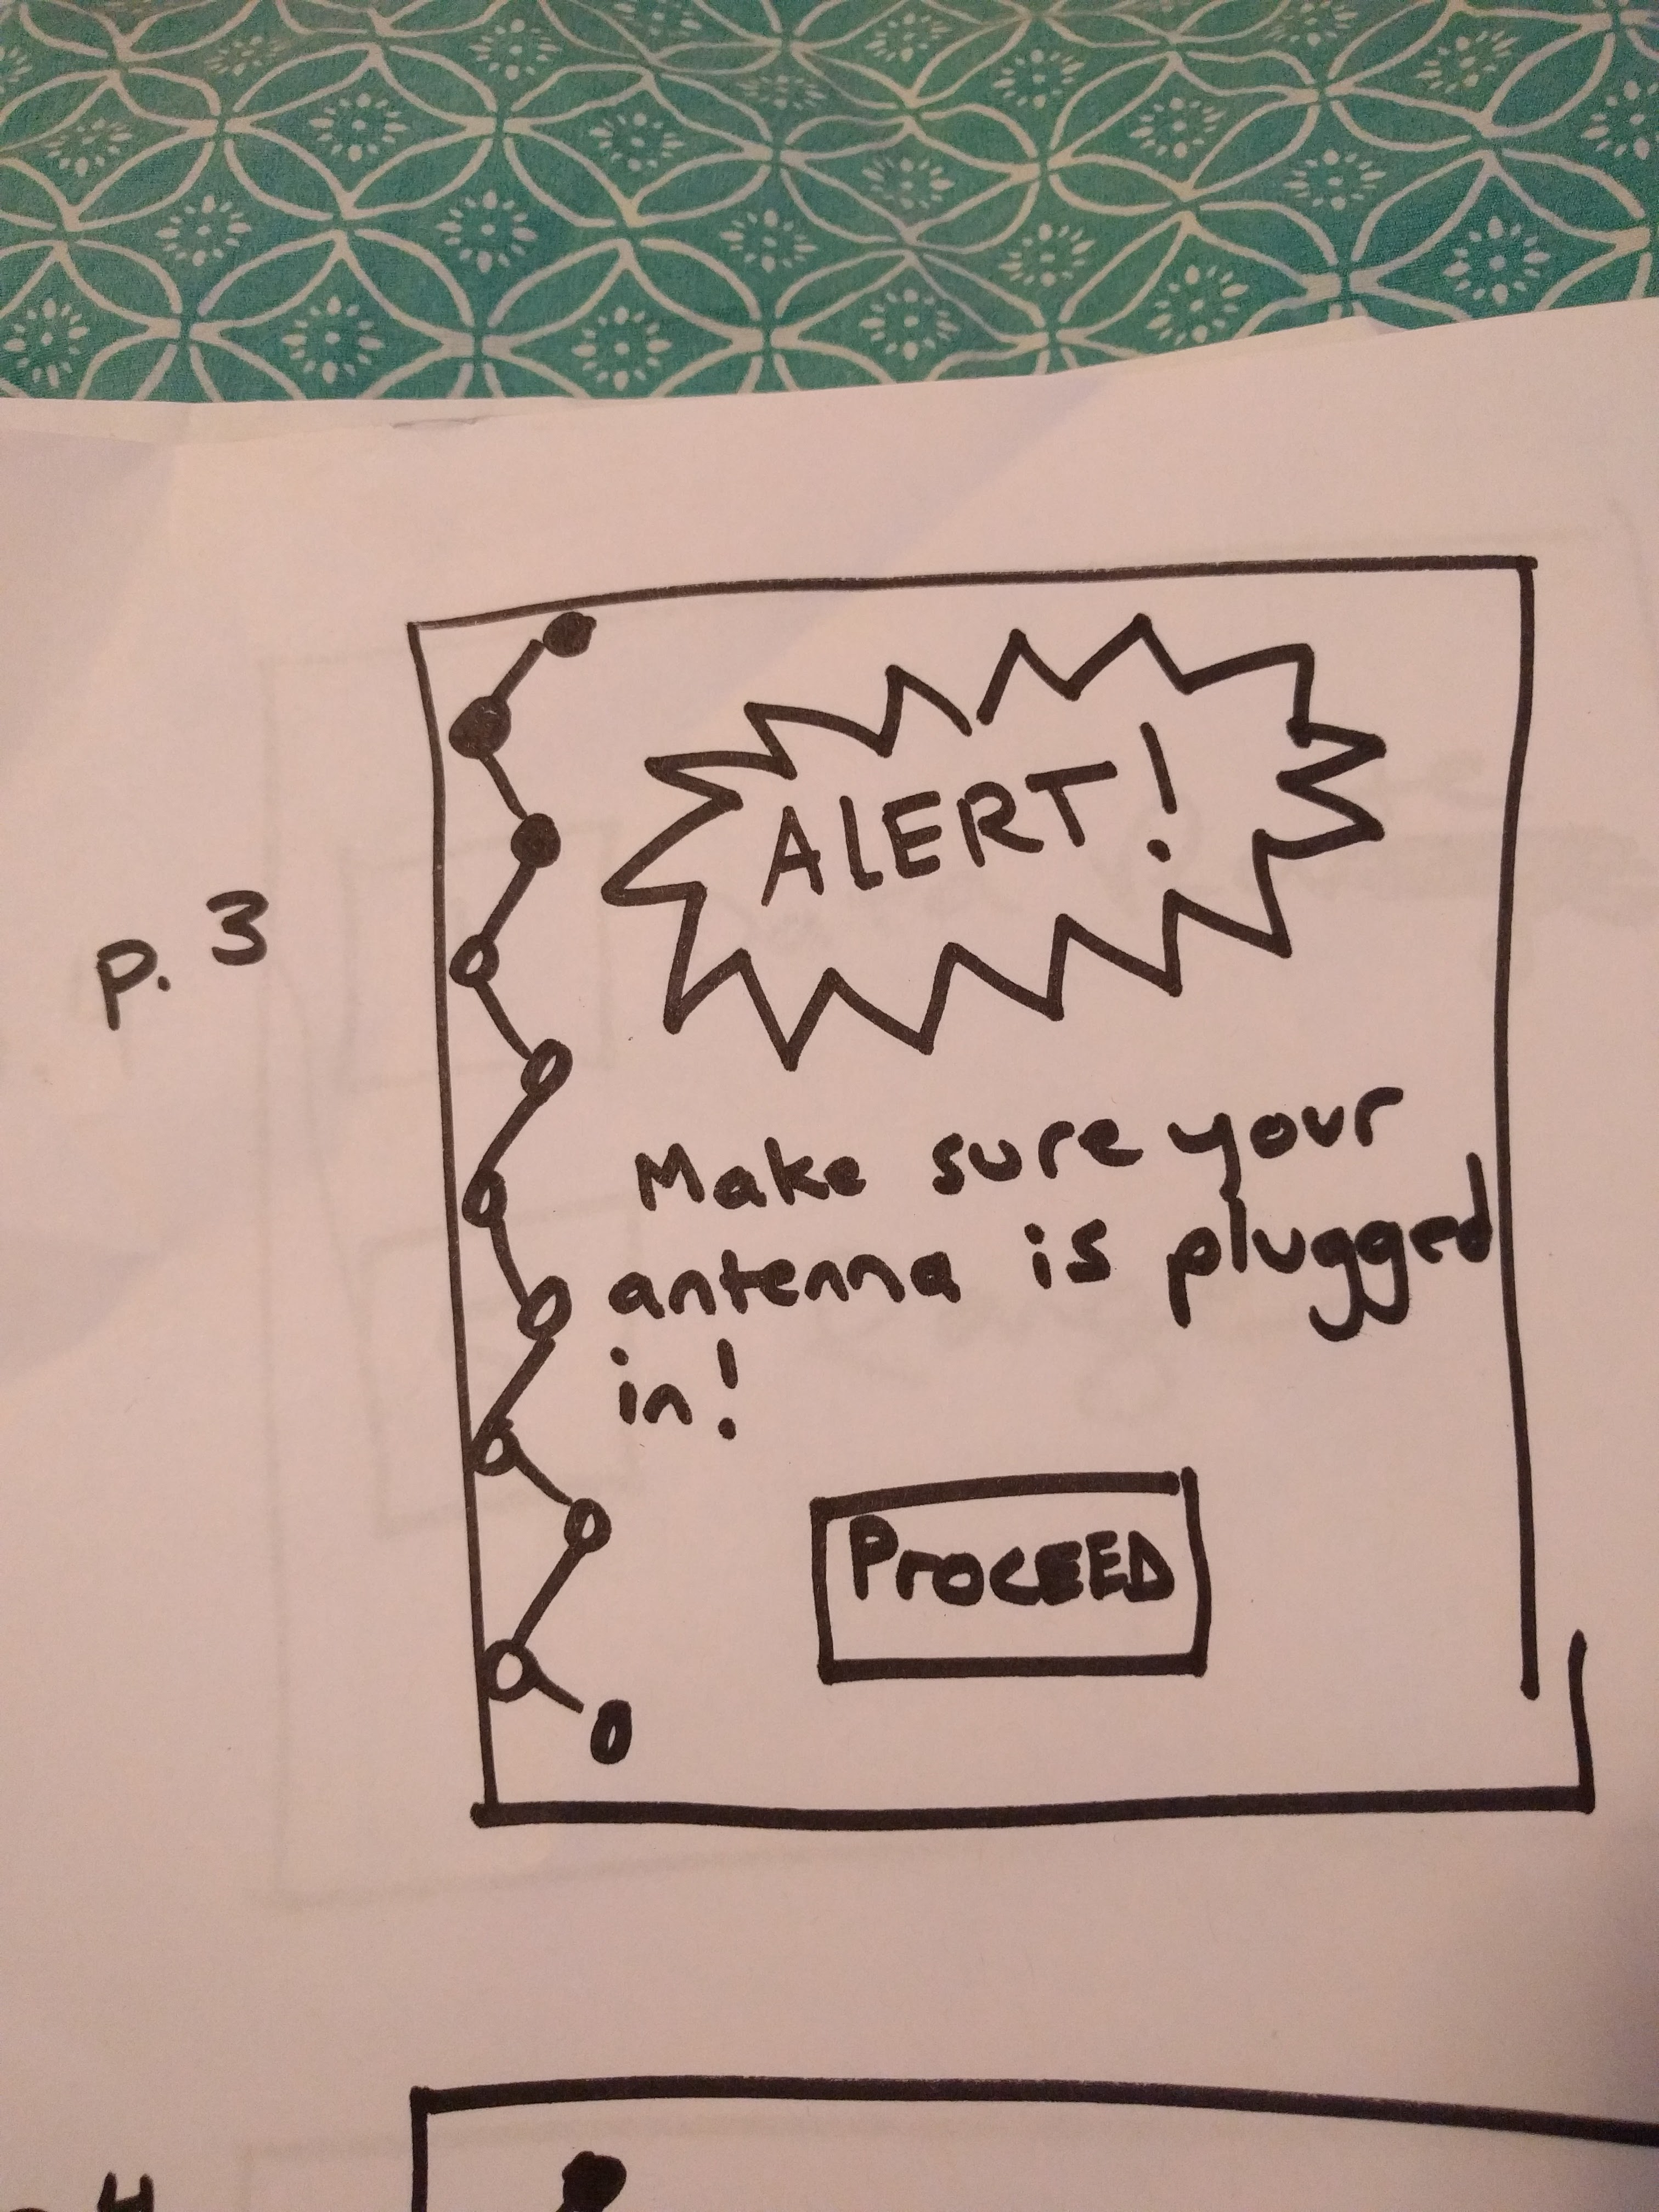 p. 3
ALERT!
Make sure your
antenna is plugged
in!
PROCEED